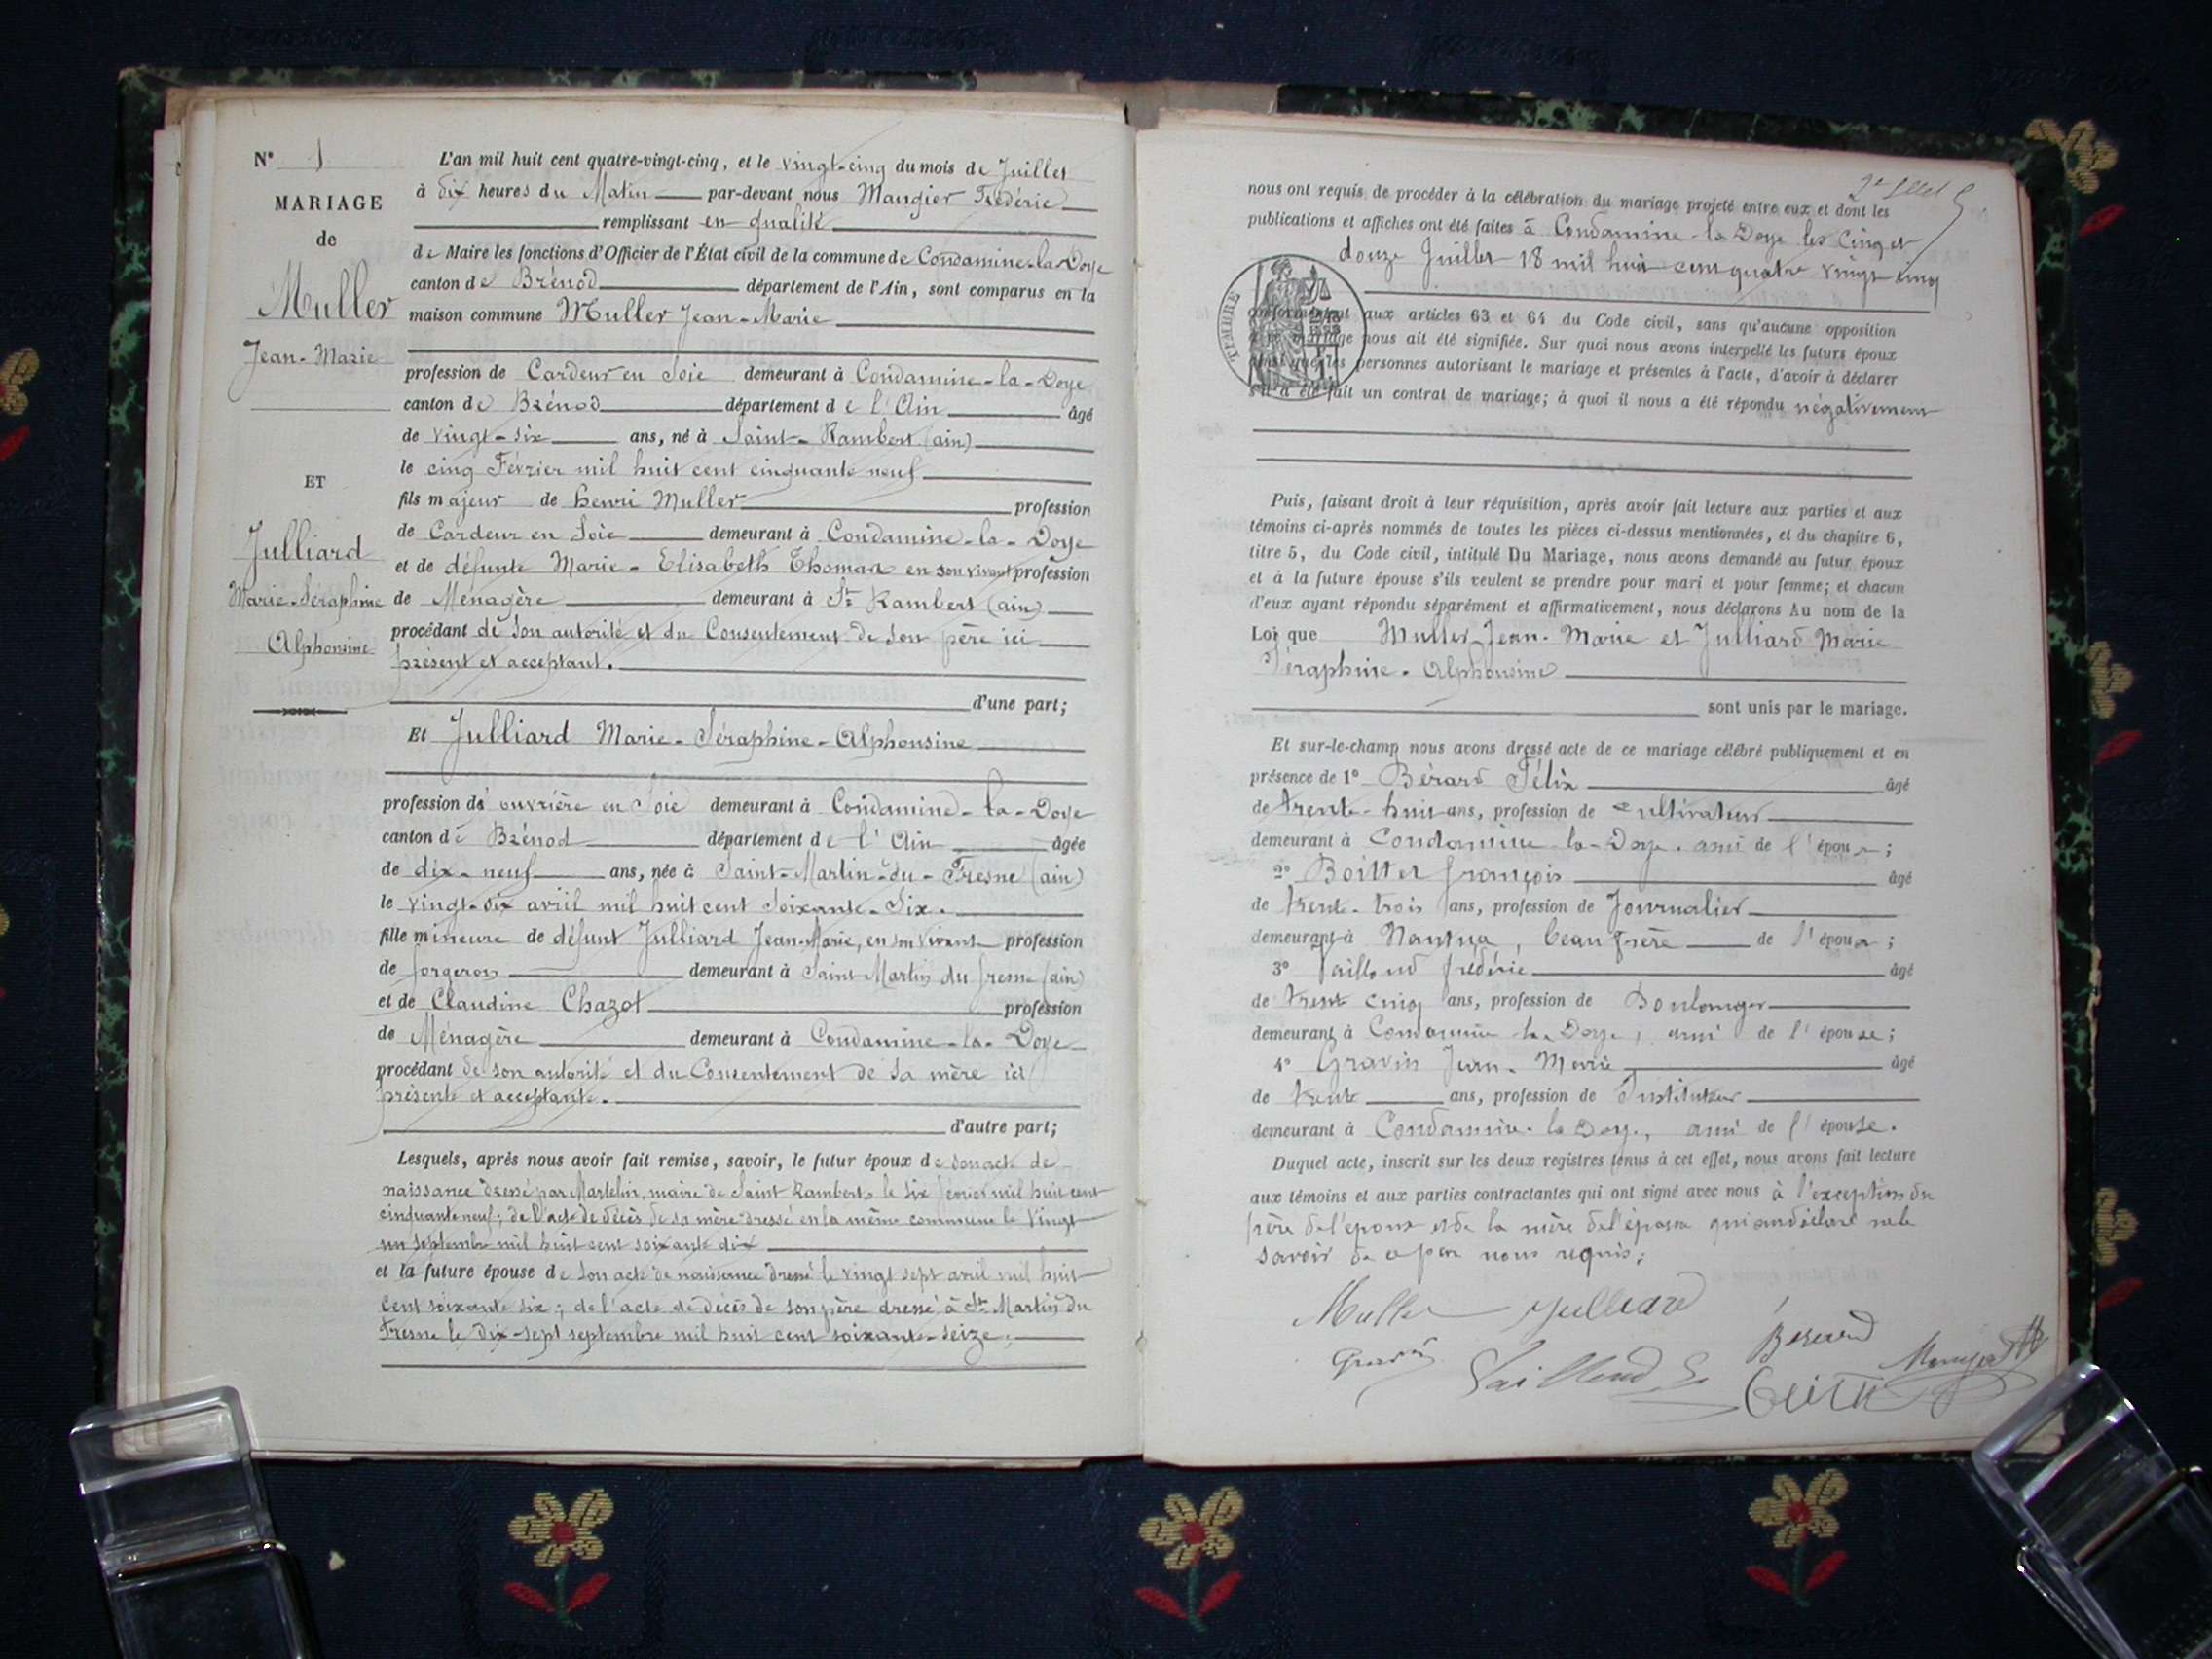 N° 1
MARIAGE
de
Muller
Jean-Marie
ET
Julliard
Marie-Séraphine
Alphonsine
L'an mil huit cent quatre-vingt-cinq, et le vingt-cinq du mois de Juillet
à dix heures du Matin par-devant nous Maugier Frédéric
remplissant en qualité
de Maire les fonctions d'Officier de l'État civil de la commune de Condamine-la-Doye
canton de Brénod département de l'Ain, sont comparus en la
maison commune Muller Jean-Marie
profession de Cardeur en Soie demeurant à Condamine-la-Doye
canton de Brénod département de l'Ain âgé
de vingt-six ans, né à Saint-Rambert (ain)
le cinq Février mil huit cent cinquante neuf
fils majeur de henri Muller profession
de Cardeur en Soie demeurant à Condamine-la-Doye
et de défunte Marie-Elisabeth Thoman en son vivant profession
de Ménagère demeurant à St Rambert (ain)
procédant de son autorité et du Consentement de son père ici
présent et acceptant.
d'une part;
Et Julliard Marie-Séraphine-Alphonsine
profession de ouvrière en Soie demeurant à Condamine-la-Doye
canton de Brénod département de l'Ain âgée
de dix-neuf ans, née à Saint-Martin-du-Fresne (ain)
le vingt-six avril mil huit cent Soixante-Six.
fille mineure de défunt Julliard Jean-Marie, en son vivant profession
de forgeron demeurant à Saint Martin du fresne (ain)
et de Claudine Chazot profession
de Ménagère demeurant à Condamine-la-Doye
procédant de son autorité et du Consentement de sa mère ici
présente et acceptante.
d'autre part;
Lesquels, après nous avoir fait remise, savoir, le futur époux de son acte de
naissance dressé par Martelin, maire de Saint Rambert, le six février mil huit cent
cinquante neuf; de l'acte de décès de sa mère dressé en la même commune le vingt
un septembre mil huit cent soixante dix
et la future épouse de son acte de naissance dressé le vingt sept avril mil huit
cent soixante six; de l'acte de décès de son père dressé à St Martin du
Fresne le dix-sept septembre mil huit cent soixante-seize.
nous ont requis de procéder à la célébration du mariage projeté entre eux et dont les
publications et affiches ont été faites à Condamine-la-Doye les cinq et
douze Juillet 18 mil huit cent quatre vingt cinq
TIMBRE
conformément aux articles 63 et 64 du Code civil, sans qu'aucune opposition
à ce mariage nous ait été signifiée. Sur quoi nous avons interpellé les futurs époux
ainsi que les personnes autorisant le mariage et présentes à l'acte, d'avoir à déclarer
s'il a été fait un contrat de mariage; à quoi il nous a été répondu négativement
Puis, faisant droit à leur réquisition, après avoir fait lecture aux parties et aux
témoins ci-après nommés de toutes les pièces ci-dessus mentionnées, et du chapitre 6,
titre 5, du Code civil, intitulé Du Mariage, nous avons demandé au futur époux
et à la future épouse s'ils veulent se prendre pour mari et pour femme; et chacun
d'eux ayant répondu séparément et affirmativement, nous déclarons Au nom de la
Loi que Muller Jean-Marie et Julliard Marie
Séraphine-Alphonsine
sont unis par le mariage.
Et sur-le-champ nous avons dressé acte de ce mariage célébré publiquement et en
présence de 1° Bérard Félix âgé
de trente-huit ans, profession de cultivateur
demeurant à Condamine la-Doye. ami de l'époux;
2° françois âgé
de trente-trois ans, profession de Journalier
demeurant à Nantua, beau frère de l'époux;
3° Vailloud frédéric âgé
de trente cinq ans, profession de Boulanger
demeurant à Condamine la Doye, ami de l'épouse;
4° Gravin Jean-Marie âgé
de trente ans, profession de Instituteur
demeurant à Condamine-la Doye, ami de l'épouse.
Duquel acte, inscrit sur les deux registres tenus à cet effet, nous avons fait lecture
aux témoins et aux parties contractantes qui ont signé avec nous à l'exception du
père de l'époux et de la mère de l'épouse qui ont déclaré ne le
savoir de ce par nous requis;
Muller Julliard
Bérard
Gravin Vailloud